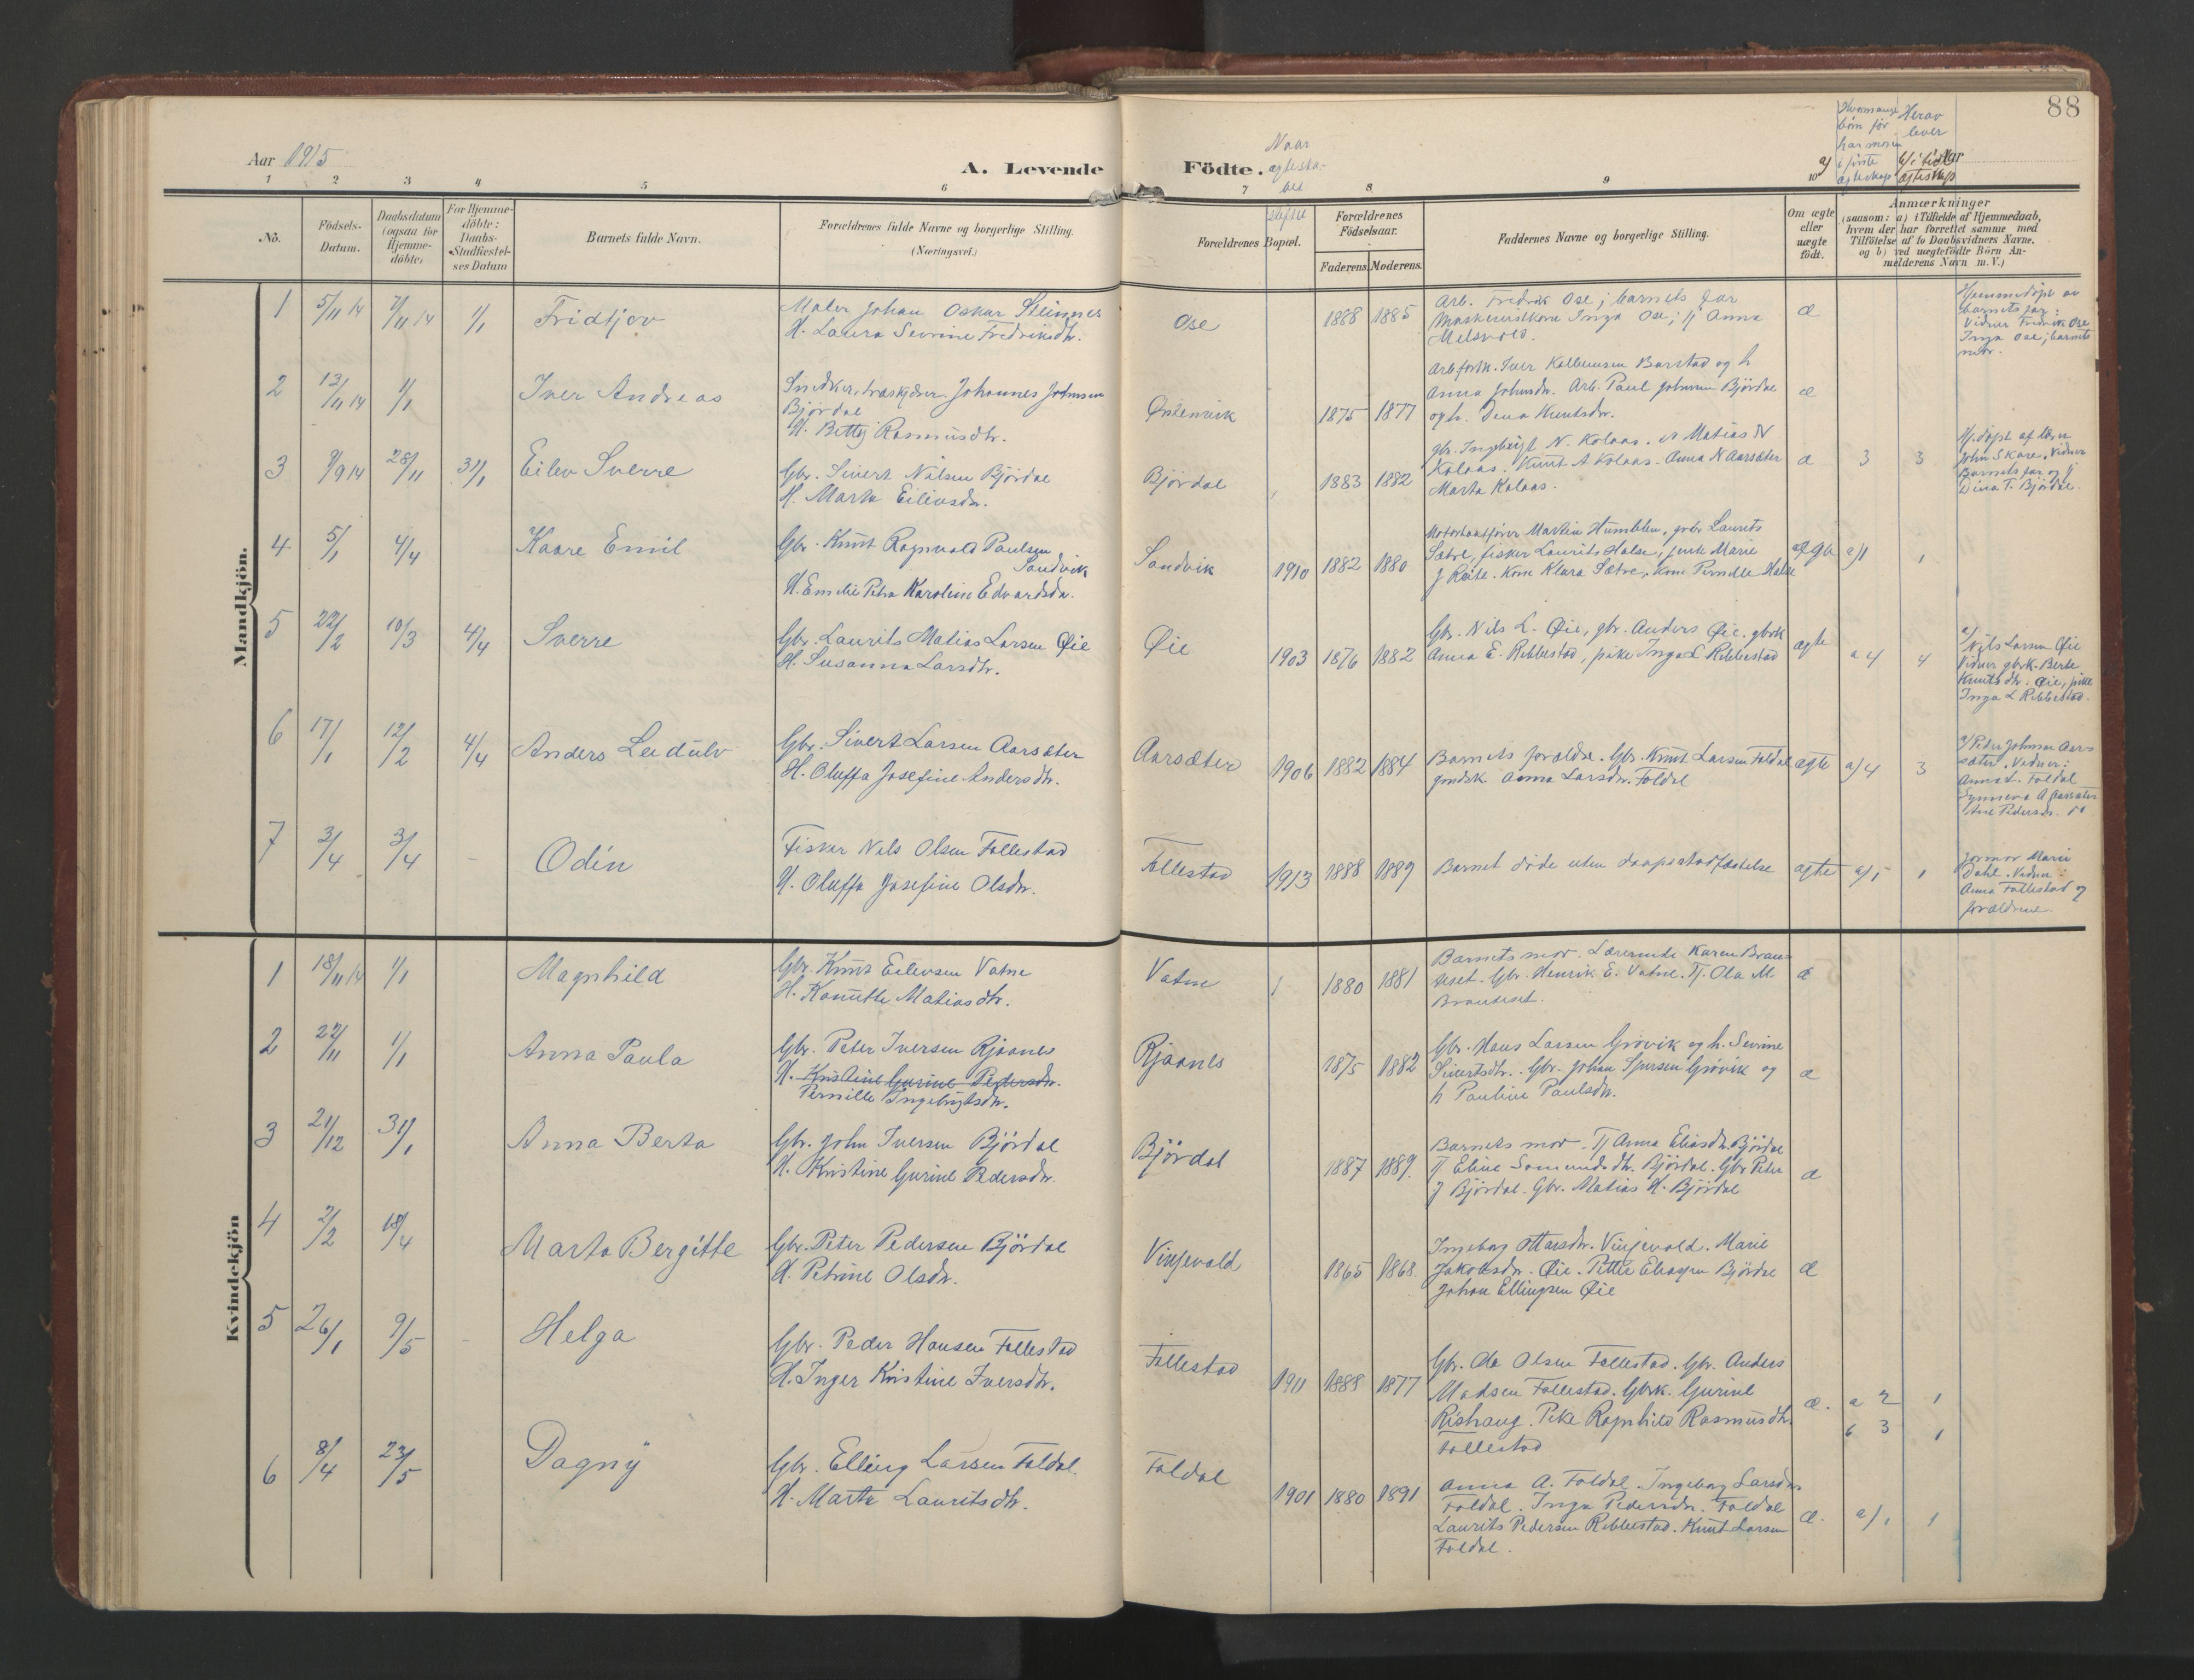 88
Aar 1915
A. Levende Födte.
Naar
Herav
lever
1 2 3 4 5 6 7 8 9 10
No.
Födsels-
Datum.
Daabsdatum
(ogsaa for
Hjemme-
döbte)
For Hjemme-
döbte:
Daabs-
Stadfæstel-
ses Datum
Barnets fulde Navn.
Forældrenes fulde Navne og borgerlige Stilling.
(Næringsvei.)
Forældrenes Bopæl.
Forældrenes
Födselsaar.
Faderens. Moderens.
Faddernes Navne og borgerlige Stilling.
Om ægte
eller
uægte
födt.
Anmærkninger
(saasom: a) i Tilfælde af Hjemmedaab,
hvem der har forrettet samme med
Tilföielse af to Daabsvidners Navne,
og b) ved uægtefödte Börn An-
melderens Navn m. V.)
Mandkjön.
1 5/11 14 7/11 14 1/1 Fridtjov
Maler Johan Oskar Steinnes
H. Laura Sevrine Fredriksdtr.
Ose 1888 1885
Arb. Fredrik Ose; barnets far
Inga Ose; Tj Anna
Melsvold.
æ
Hjemmedöpt av
barnets far:
Vidner Fredrik Ose
Inga Ose, barnets
mor.
2 13/11 14 1/1 Iver Andreas
Snedker, træskjærer Johannes Johnsen
Bjørdal
H. Betty Rasmusdtr.
Østenvik 1875 1877
Arbform. Iver Kolbeinsen Barstad og h
Anna Johnsdtr. Arb. Paul Johnsen Bjørdal
og h. Dena Knutsdtr.
æ
3 9/9 14 28/11 31/1 Eilev Sverre
Gbr. Sivert Nilsen Bjørdal
H. Marta Eilevsdtr.
Bjørdal 1883 1882
gbr. Ingebrigt N. Kolaas. Matias N
Kolaas. Knut A Kolaas. Anna N Aarsæter
Marta Kolaas.
æ 3 3
Hj.döpt af
John Skare. Vidner
Barnets far og Tj
Dina T. Bjørdal.
4 5/1 4/4 Kaare Emil
Gbr. Knut Ragnvald Paulsen
Sandvik
H. Emelie Petra Karoline Edvardsdtr.
Sandvik 1910 1882 1880
Motorbaatfører Martin Humblen, gbr Laurits
Sætre, fisker Laurits Halse, pike Marie
J Reite. Kone Klara Sætre, kone Pernille Halse
ægte a/1 1
5 22/2 10/3 4/4 Sverre
Gbr. Laurits Matias Larsen Øie
H. Susanna Larsdtr.
Øie 1903 1876 1882
Gbr. Nils L. Øie, gbr. Anders Øie. gbrk
Anna E. Ribbestad, pike Inga L Ribbestad
ægte a 4 4
a/
Nils Larsen Øie
Vidner gbrk. Berte
Knutsdtr. Øie, pike
Inga L Ribbestad.
6 17/1 12/2 4/4 Anders Leidulv
Gbr. Sivert Larsen Aarsæter
H. Oluffa Josefine Andersdtr.
Aarsæter 1906 1882 1884
Barnets forældre. Gbr. Knut Larsen Foldal
Anna Larsdtr. Foldal
ægte a/4 3
a/ Peder Johnsen Aar-
sæter. Vidner:
Anna L. Foldal
Synneva A Aarsæter
Ane Pedersdtr.
7 3/4 3/4 - Odin
Fisker Nils Olsen Follestad
H. Oluffa Josefine Olsdtr.
Follestad 1913 1888 1889
Barnet døde uten daapsstadfæstelse
ægte a/1 1
Jormor Marie
Dahl. Vidner:
Anna Follestad og
forældrene.
Kvindekjön
1 18/11 14 1/1 Magnhild
Gbr. Knut Eilevsen Vatne
H. Kanutte Matiasdtr.
Vatne 1880 1881
Barnets mor. Lærerinde Karen Brau-
seset. Gbr. Henrik E. Vatne. Tj. Ola M
Brauseset.
æ
2 22/11 1/1 Anna Paula
Gbr. Peter Iversen Rjaanes
H. Kristine Gurine Pedersdtr.
Pernille Ingebrigtsdtr.
Rjaanes 1875 1882
Gbr. Hans Larsen Grøvik og h. Sevrine
Sivertsdtr. Gbr. Johan Sjursen Grøvik og
h Pauline Paulsdtr.
æ
3 21/12 31/1 Anna Berta
Gbr. John Iversen Bjørdal
H. Kristine Gurine Pedersdtr.
Bjørdal 1887 1889.
Barnets mor. Tj Anna Eliasdtr. Bjørdal
Tj Eline Samundsdtr. Bjørdal. Gbr Peter
J Bjørdal. Gbr. Matias H. Bjørdal
æ
4 2/2 18/4 Marta Bergitte
Gbr. Peter Pedersen Bjørdal
H. Petrine Olsdtr.
Vinjevold 1865 1868.
Ingeborg Ottarsdtr. Vinjevold. Marie
Jakobsdtr. Øie. Petter Eliassen Bjørdal
Johan Ellingsen Øie
æ
5 26/1 9/5 - Helga
Gbr. Peder Hansen Follestad
H. Inger Kristine Iversdtr.
Follestad 1911 1888 1877
Gbr. Ole Olsen Follestad. Gbr. Anders
Madsen Follestad. Gbrk. Gurine
Rishaug. Pike Ragnhild Rasmusdtr.
Follestad
æ. a 2 1
b 3 1
6 8/4 23/5 Dagny
Gbr. Elling Larsen Foldal.
H. Marte Lauritsdtr.
Foldal 1901 1880 1891
Anna A. Foldal. Ingeborg Larsdtr
Foldal. Inga Pedersdtr. Foldal
Laurits Pedersen Ribbestad. Knut Larsen
Foldal.
æ. a/1 1